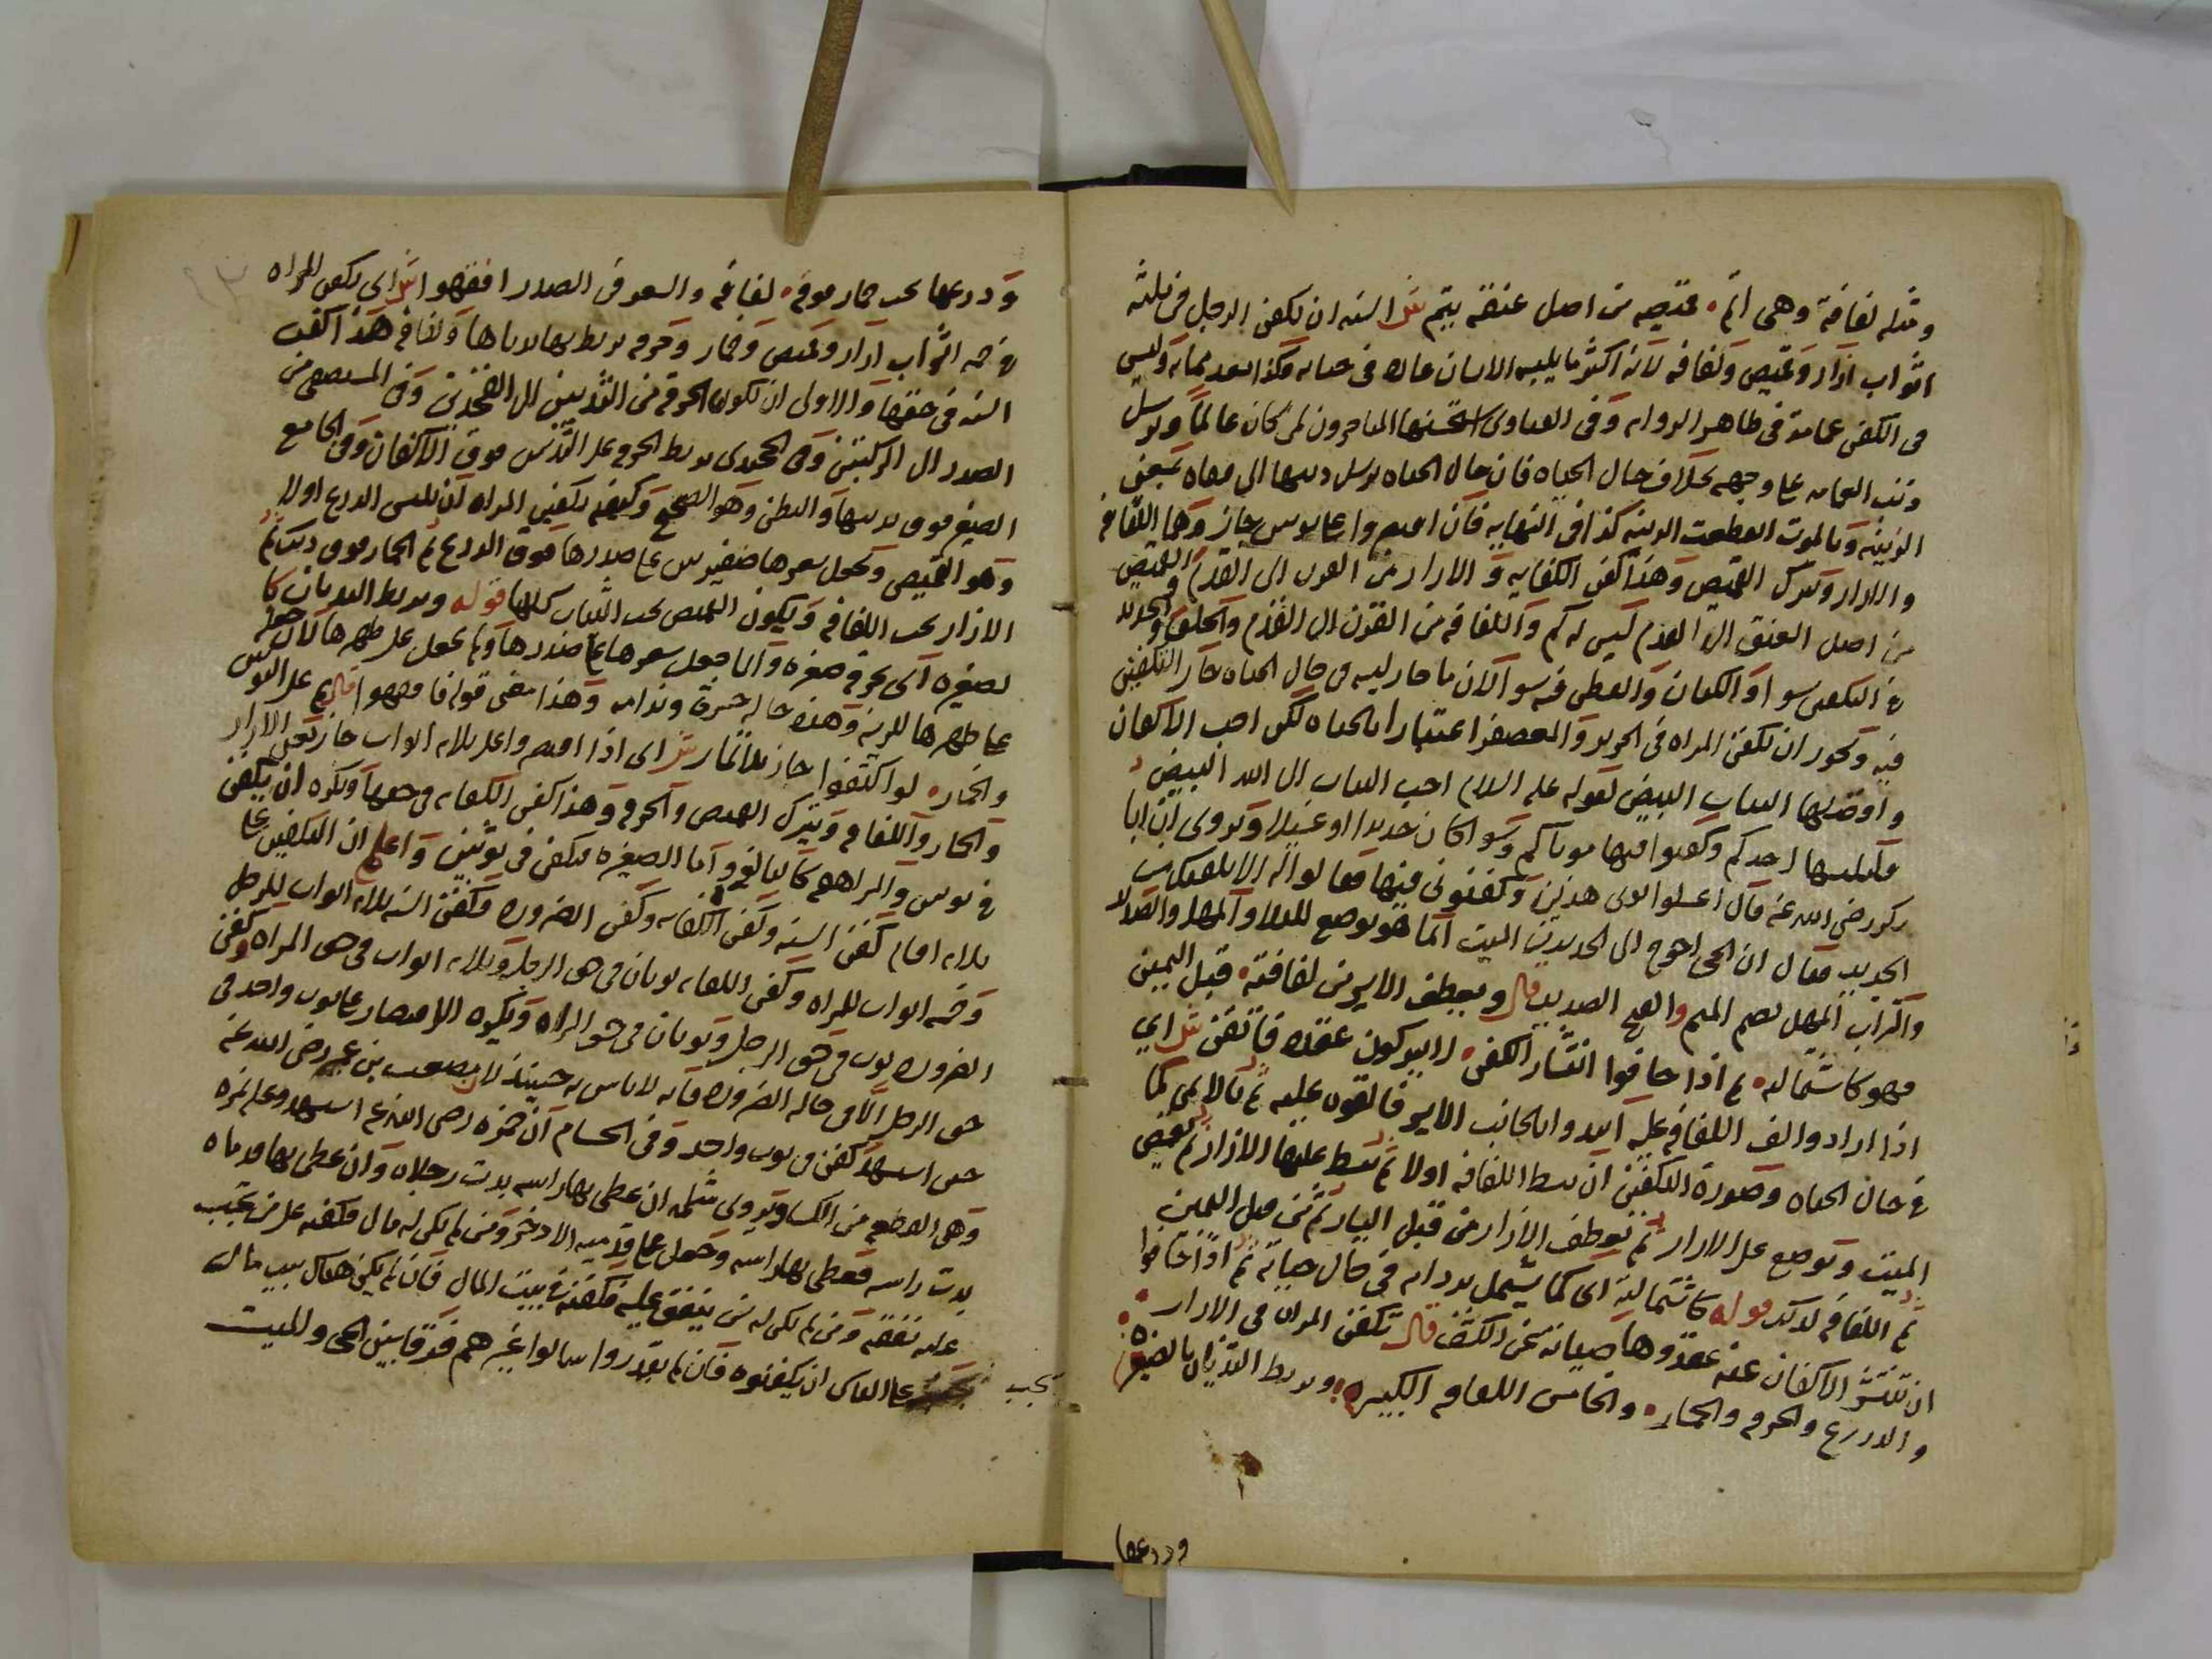 ومثله لفافة وهي اتم قميصه من اصل عنقه يتم ش السنه ان يكفن الرجل في ثلثه
اثواب ازار وقميص ولفافه لانه اكثر ما يلبسه الانسان عاده في حياته فكذا بعد مماته وليس
في الكفن عمامة في ظاهر الروايه وفي الفتاوى استحسنها المتاخرون لمن كان عالما ويرسل
ذنب العمامه على وجهه بخلاف حال الحياه فان حال الحياه يرسل ذنبها الى قفاه لمعنى
الزينه وبالموت انقطعت الزينه كذا في النهايه فان اقتصروا على ثوبين جاز وهما اللفافه
والازار ويترك القميص وهذا كفن الكفايه والازار من القرن الى القدم والقميص
من اصل العنق الى القدم ليس له كم واللفافه من القرن الى القدم والخلق والجديد
في التكفين سوا والكتان والقطن فيه سوا لان ما جاز لبسه في حال الحياه جاز التكفين
فيه ويجوز ان تكفن المراه في الحرير والمعصفر اعتبارا بالحياه لكن احب الاكفان
وافضلها الثياب البيض لقوله عليه السلام احب الثياب الى الله البيض
فليلبسها احدكم وكفنوا فيها موتاكم وسوا كان جديدا او غسيلا ويروى ان ابا
بكر رضي الله عنه قال اغسلوا ثوبي هذين وكفنوني فيهما فقالوا له الا نكفنك من
الجديد فقال ان الحي احوج الى الجديد من الميت انما هو يوضع للبلا والمهل والصديد
والتراب المهل بضم الميم والقيح الصديد قال ويعطف الايسر من لفافته قبل اليمين
فهو كاشتماله ثم اذا خافوا انتشار الكفن لا يتركون عقده فاتقن ش اي
اذا ارادوا لف اللفافه عليه ابتدوا بالجانب الايسر فالقوه عليه ثم بالايمن كما
في حال الحياه وصورة التكفين ان تبسط اللفافه اولا ثم تبسط عليها الازار ثم يقمص
الميت ويوضع على الازار ثم يعطف الازار من قبل اليسار ثم من قبل اليمين
ثم اللفافه كذلك قوله كاشتماله اي كما يشتمل بردائه في حال حياته ثم اذا خافوا
ان تنتشر الاكفان عنه عقدوها صيانة عن الكشف قال تكفن المراه في الازار
والدرع والخرقه والخمار والخامس اللفافه الكبيره ويربط الثديان بالصغرى
ودرعها
ودرعها تحت خمار فوقه لفافه والشعر في الصدر افقهوا ش اي تكفن المراه
في خمسه اثواب ازار وقميص وخمار وخرقه يربط بها ثدياها ولفافه هذا كفن
السنه في حقها والاولى ان تكون الخرقه من الثديين الى الفخذين وفي المستصفى من
الصدر الى الركبتين وفي الخجندي يربط الخرقه على الثديين فوق الاكفان وفي الجامع
الصغير فوق ثدييها والبطن وهو الصحيح وكيفيه تكفين المراه ان تلبس الدرع اولا
وهو القميص ويجعل شعرها ضفيرتين على صدرها فوق الدرع ثم الخمار فوق ذلك ثم
الازار تحت اللفافه ويكون القميص تحت الثياب كلها قوله ويربط الثديان با
لصغيره اي بخرقه صغيره وانما جعل شعرها على صدرها ولم يجعل على ظهرها لان جعله
على ظهرها للزينه وهذه حالة حسره وندامه وهذا معنى قوله فافقهوا قال ثم على الثوبين
والخمار لو اكتفوا جاز بلا تمار ش اي اذا اقتصروا على ثلاثه اثواب جاز يعني الازار
والخمار واللفافه ويترك القميص والخرقه وهذا كفن الكفايه في حقها ويكره ان تكفن
في ثوبين والمراهقه كالبالغه واما الصغيره فتكفن في ثوبين واعلم ان التكفين على
ثلاثه اقسام كفن السنه وكفن الكفايه وكفن الضروره فكفن السنه ثلاثه اثواب للرجل
وخمسه اثواب للمراه وكفن الكفايه ثوبان في حق الرجل وثلاثه اثواب في حق المراه وكفن
الضروره ثوب في حق الرجل وثوبان في حق المراه ويكره الاقتصار على ثوب واحد في
حق الرجل الا في حاله الضروره فانه لا باس به حينئذ لان مصعب بن عمير رضي الله عنه
حين استشهد كفن في ثوب واحد وفي الحسام ان حمزه رضي الله عنه استشهد وعليه نمره
وهي القطعه من الكسا ويروى شمله ان غطى بها راسه بدت رجلاه وان غطى بها قدماه
بدت راسه فغطى بها راسه وجعل على قدميه الاذخر ومن لم يكن له مال فكفنه على من تجب
عليه نفقته ومن لم يكن له من ينفق عليه فكفنه في بيت المال فان لم يكن هناك بيت مال
على الناس ان يكفنوه فان لم يقدروا سالوا غيرهم فرقا بين الحي والميت
يجب